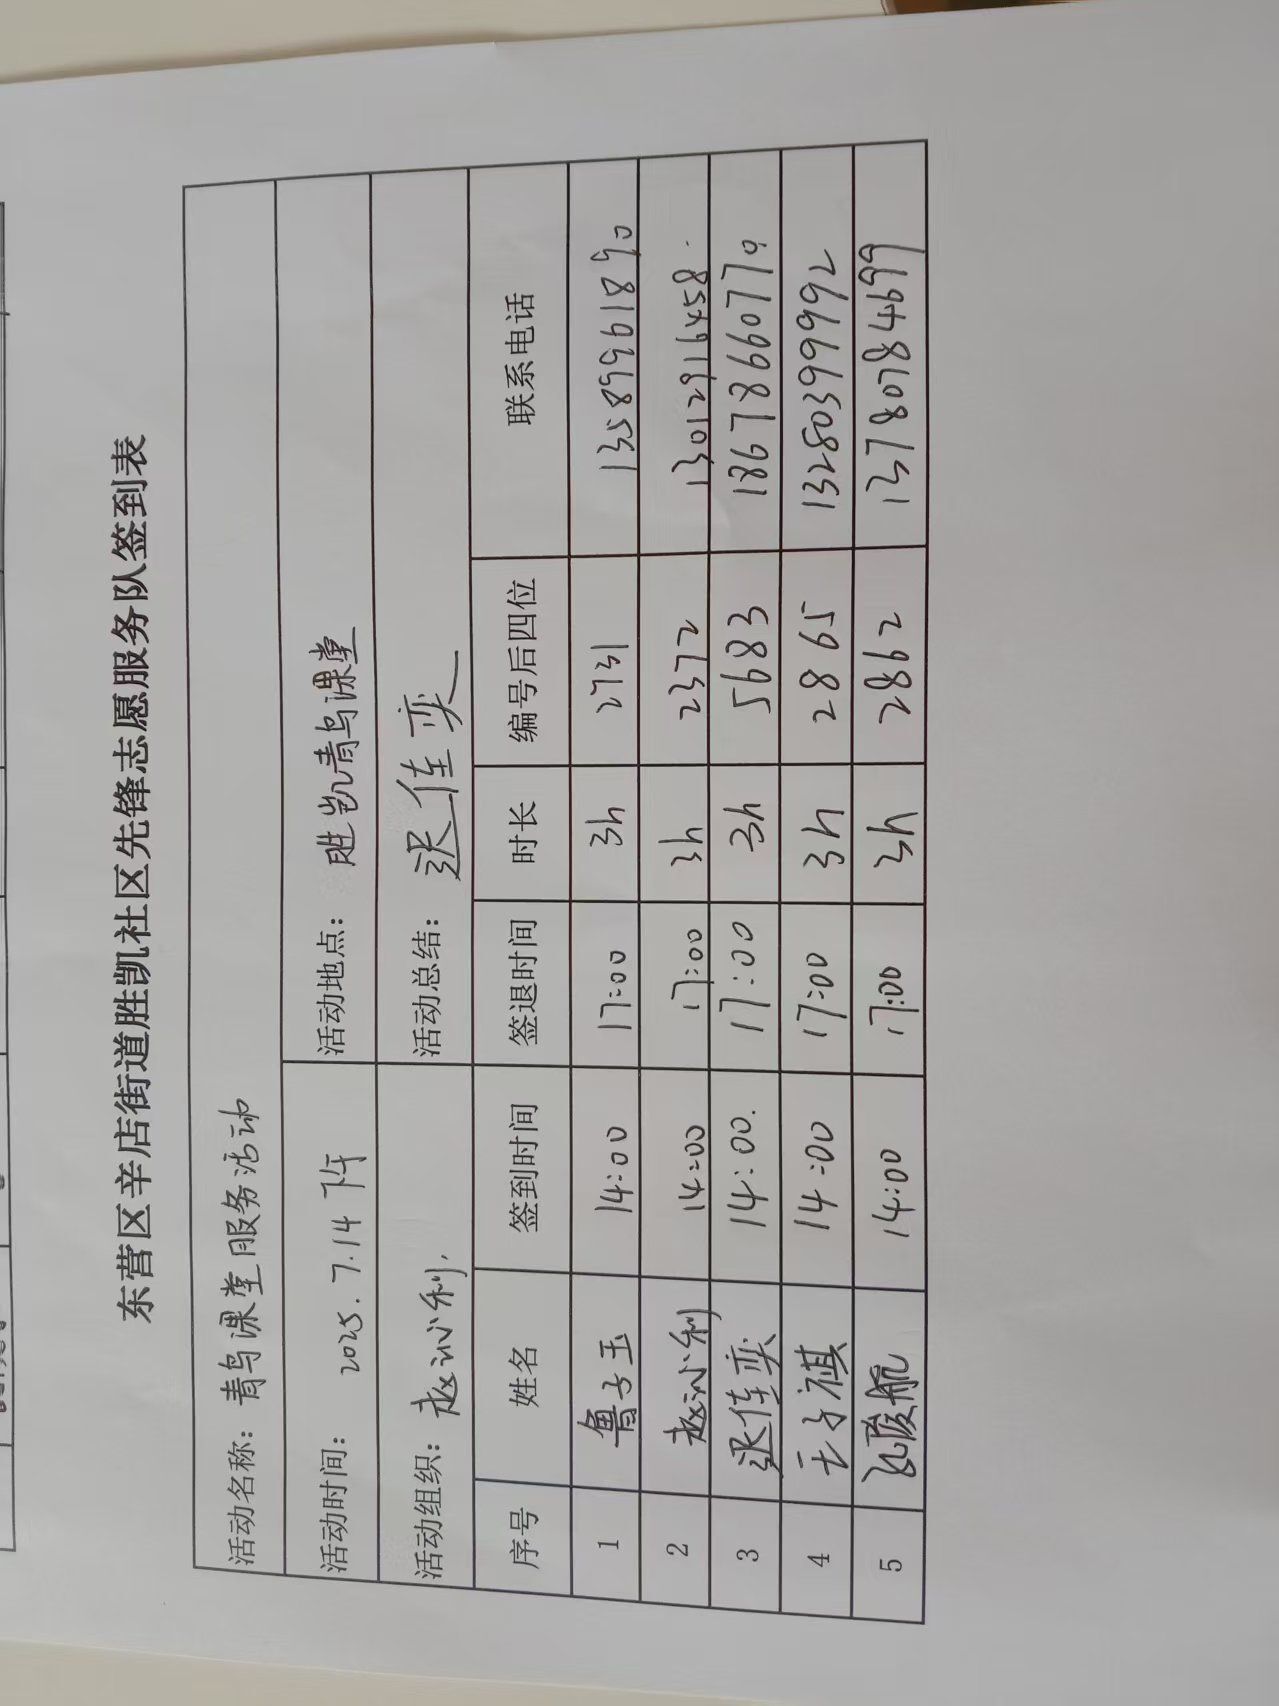 东营区辛店街道胜凯社区先锋志愿服务队签到表
活动名称：青鸟课堂服务活动
活动时间：2025.7.14 下午 活动地点：胜凯青鸟课堂
活动组织：赵沁利 活动总结：迟佳奕
序号 姓名 签到时间 签退时间 时长 编号后四位 联系电话
1 鲁子玉 14:00 17:00 3h 2731 13589961890
2 赵沁利 14:00 17:00 3h 2372 13012916458
3 迟佳奕 14:00. 17:00 3h 5683 18678660770
4 王子祺 14:00 17:00 3h 2865 13280399992
5 14:00 17:00 3h 2862 13780784699